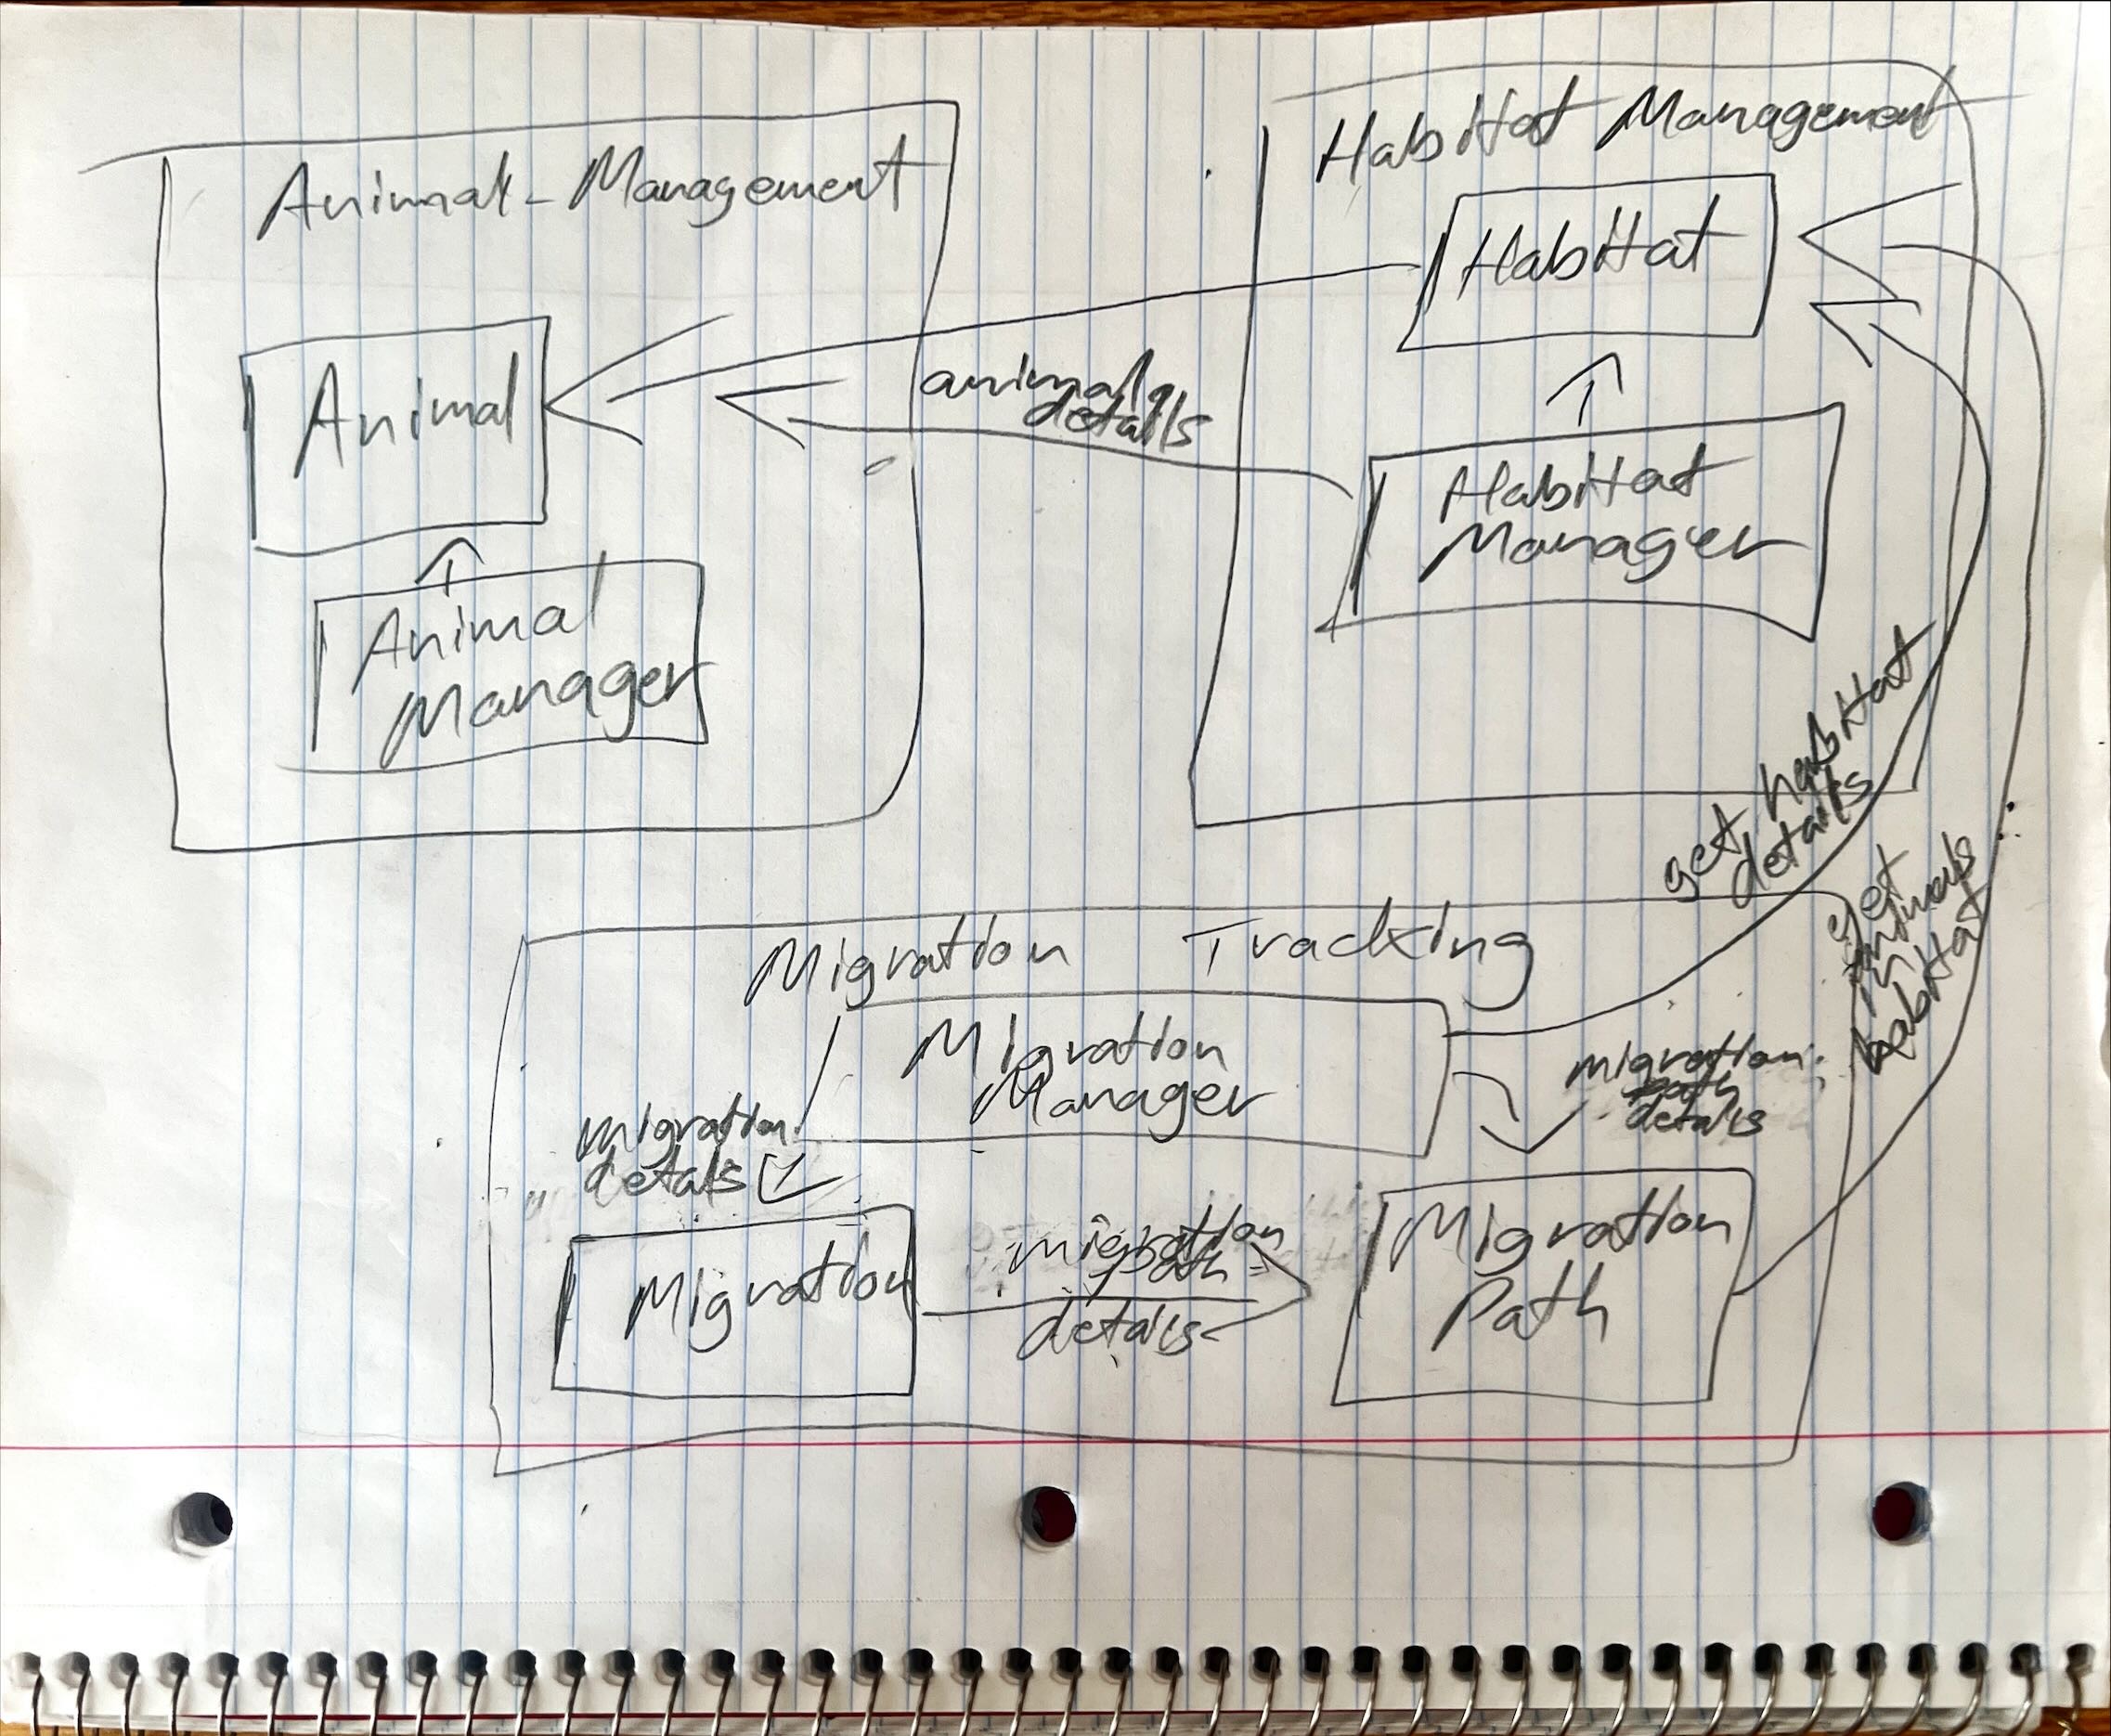 Animal-Management
Animal
Animal
Manager
animal
details
Habitat Management
Habitat
Habitat
Manager
get habitat
details
get
animals
in
habitat
Migration Tracking
Migration
Manager
migration
details
migration
path
details
Migration
migration
path
details
Migration
Path